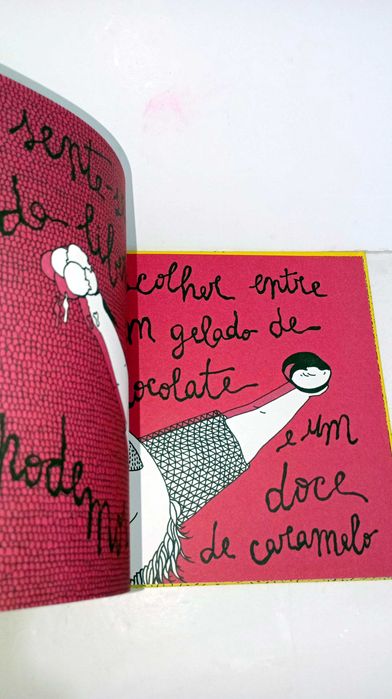 sente-s
da
podemos
colher entre
m gelado de
ocolate
e um
doce
de caramelo